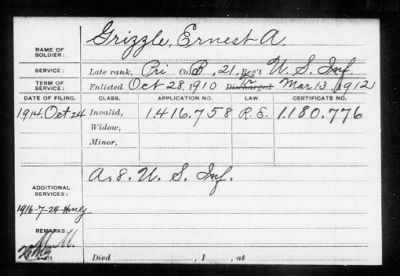 NAME OF SOLDIER: Grizzle, Ernest A.
SERVICE: Late rank, Pri Co. B, 21, Reg't U. S. Inf.
TERM OF SERVICE: Enlisted Oct 28, 1910 Discharged Mar 13, 1912
DATE OF FILING. CLASS. APPLICATION NO. LAW. CERTIFICATE NO.
1914 Oct 24 Invalid, 1.416.758 R.E. 1.180.776
Widow,
Minor,
ADDITIONAL SERVICES: A. 8. U. S. Inf.
1916-7-24
REMARKS:
Died , 1 , at